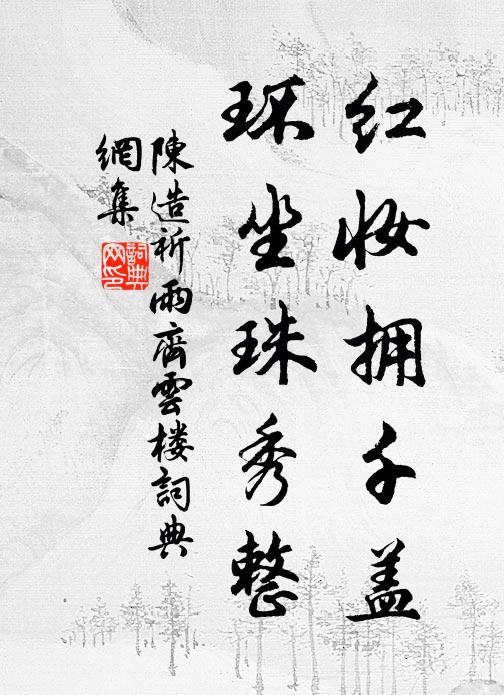 红妆拥千盖
环坐珠秀整
陳造祈雨齊雲楼詞典
網集
詞典
网印